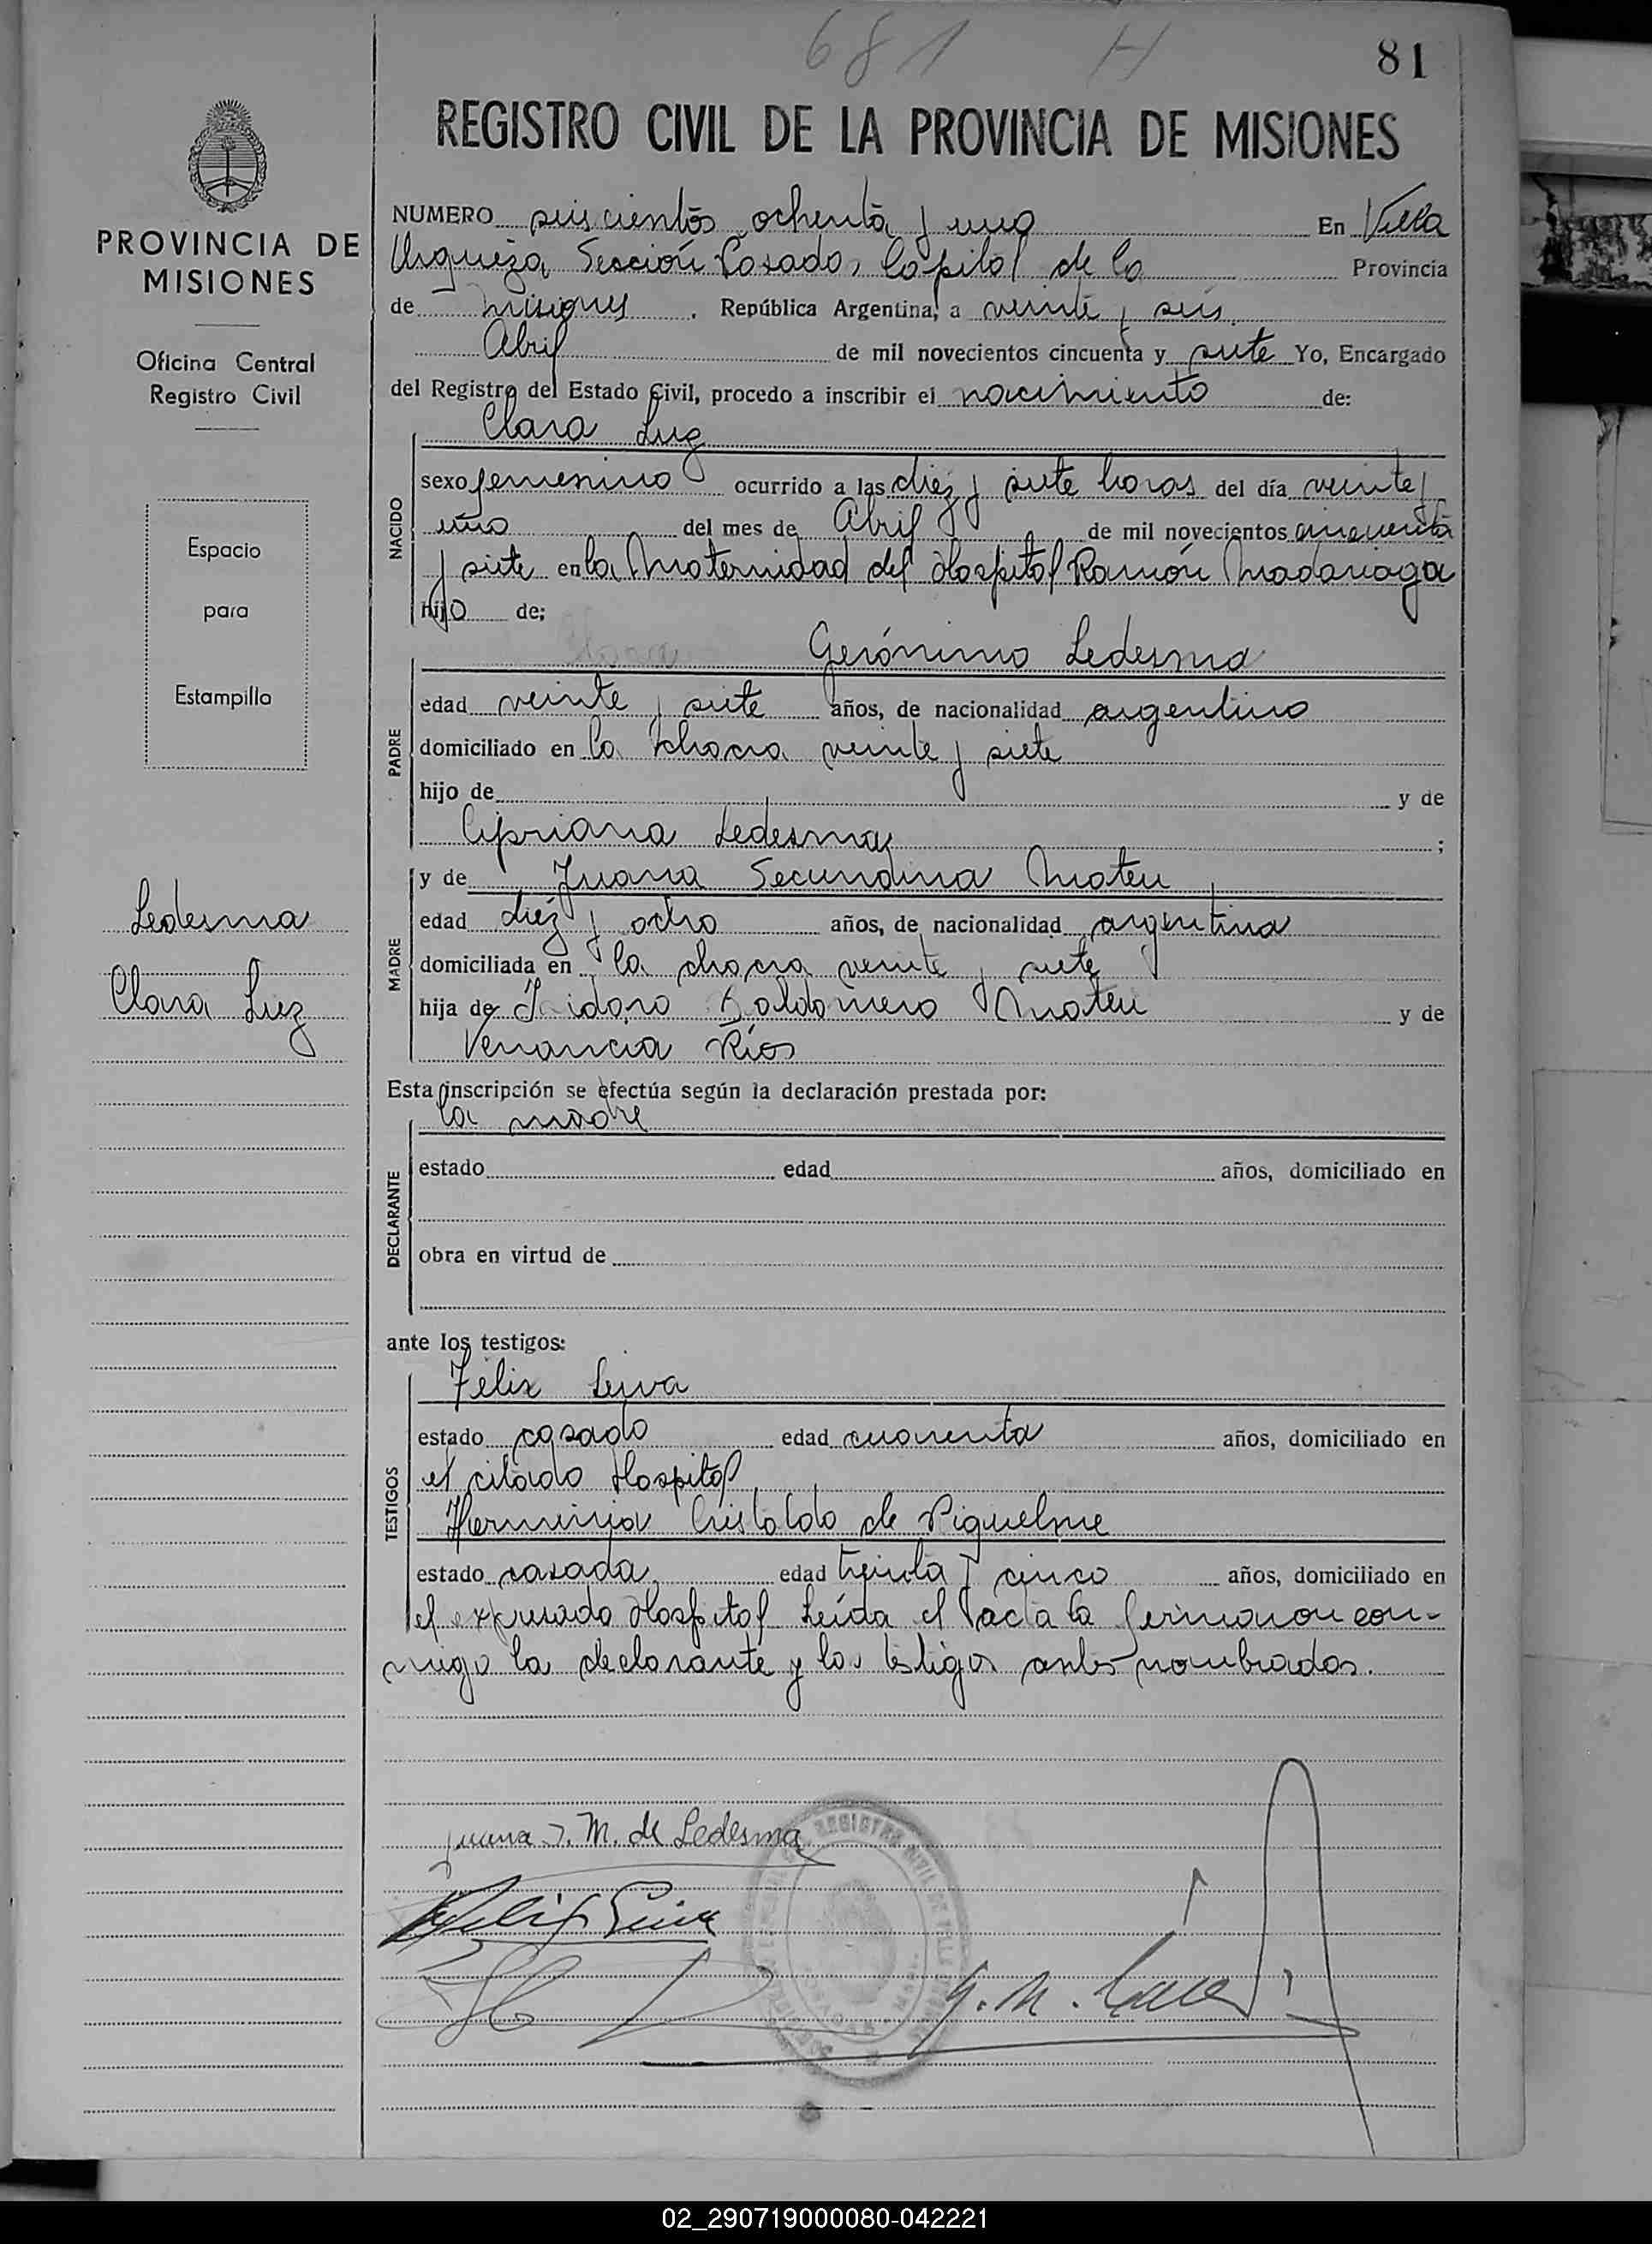 681 H
81
REGISTRO CIVIL DE LA PROVINCIA DE MISIONES
PROVINCIA DE
MISIONES
Oficina Central
Registro Civil
Espacio
para
Estampilla
Ledesma
Clara Luz
NUMERO seiscientos ochenta y uno En Villa
Urquiza, Sección Posadas, Capital de la Provincia
de Misiones, República Argentina, a veinte y seis
Abril de mil novecientos cincuenta y siete Yo, Encargado
del Registro del Estado Civil, procedo a inscribir el nacimiento de:
Clara Luz
NACIDO
sexo femenino ocurrido a las diez y siete horas del día veinte y
uno del mes de Abril de mil novecientos cincuenta
y siete en la Maternidad del Hospital Ramón Madariaga
hija de;
Gerónimo Ledesma
PADRE
edad veinte y siete años, de nacionalidad argentino
domiciliado en la chacra veinte y siete
hijo de y de
Cipriana Ledesma ;
y de Juana Secundina Mateu
MADRE
edad diez y ocho años, de nacionalidad argentina
domiciliada en la chacra veinte y siete
hija de Isidoro Baldomero Mateu y de
Venancia Ríos
Esta inscripción se efectúa según la declaración prestada por:
la madre
DECLARANTE
estado edad años, domiciliado en
obra en virtud de
ante los testigos:
Félix Leiva
TESTIGOS
estado casado edad cuarenta años, domiciliado en
el citado Hospital
Herminia Cristaldo de Riquelme
estado casada edad treinta y cinco años, domiciliado en
el expresado Hospital Leída el acta la firmaron con-
migo la declarante y los testigos antes nombrados.
Juana S. M. de Ledesma
Felix Leiva
REGISTRO CIVIL DE
G. M.
02_290719000080-042221